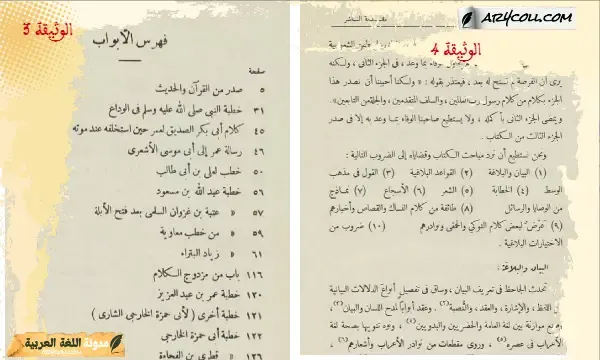 الوثيقة 3
فهرس الأبواب
صفحة
٥ صدر من القرآن والحديث
٣١ خطبة النبي صلى الله عليه وسلم في الوداع
٤٥ كلام أبى بكر الصديق لعمر حين استخلفه عند موته
٤٦ رسالة عمر إلى أبى موسى الأشعرى
٥٠ خطب لعلى بن أبى طالب
٥٦ خطبة عبد الله بن مسعود
٥٧ » عتبة بن غزوان السلمى بعد فتح الأبلة
٥٩ » من خطب معاوية
٦١ » زياد البتراء
١١٦ باب من مزدوج الكلام
١٢٠ خطبة عمر بن عبد العزيز
١٢٢ خطبة أخرى ( لأبى حمزة الخارجى الشارى )
١٢٢ خطبة أبى حمزة الخارجى
١٢٦ » قطرى بن الفجاءة
مدونة اللغة العربية
AR4COLL.COM
مقدمة الناشر
الوثيقة 4
وفاء بما وعد ، في الجزء الثانى ، ولكنه
يرى أن الفرصة لم تسنح له بعد ، فيعتذر بقوله : « ولكنا أحببنا أن نصدر هذا
الجزء بكلام من كلام رسول رب العالمين ، والسلف المتقدمين ، والجلة من التابعين » .
ويمضى الجزء الثانى بأكمله ، ولا يستطيع صاحبنا الوفاء بما وعد به إلا في صدر
الجزء الثالث من الكتاب .
ونحن نستطيع أن نرد مباحث الكتاب وقضاياه إلى الضروب التالية :
(١) البيان والبلاغة (٢) القواعد البلاغية (٣) القول في مذهب
الوسط (٤) الخطابة (٥) الشعر (٦) الأسجاع (٧) نماذج
من الوصايا والرسائل (٨) طائفة من كلام النساك والقصاص وأخبارهم
(٩) عرض لبعض كلام النوكى والحمقى ونوادرهم (١٠) ضروب من
الاختيارات البلاغية .
البيان والبلاغة:
تحدث الجاحظ في تعريف البيان ، وساق في تفصيل أنواع الدلالات البيانية
اللفظ ، والإشارة ، والعقد ، والنصبة(٢) . وعقد أبوابا لمدح اللسان والبيان(٣) ،
موازنة بين لغة العامة والحضريين والبدويين(٤) ، ونوه تنويها بصحة لغة
الأعراب في عصره(٥) ، وروى مقطعات من نوادر الأعراب وأشعارهم(٦) ،